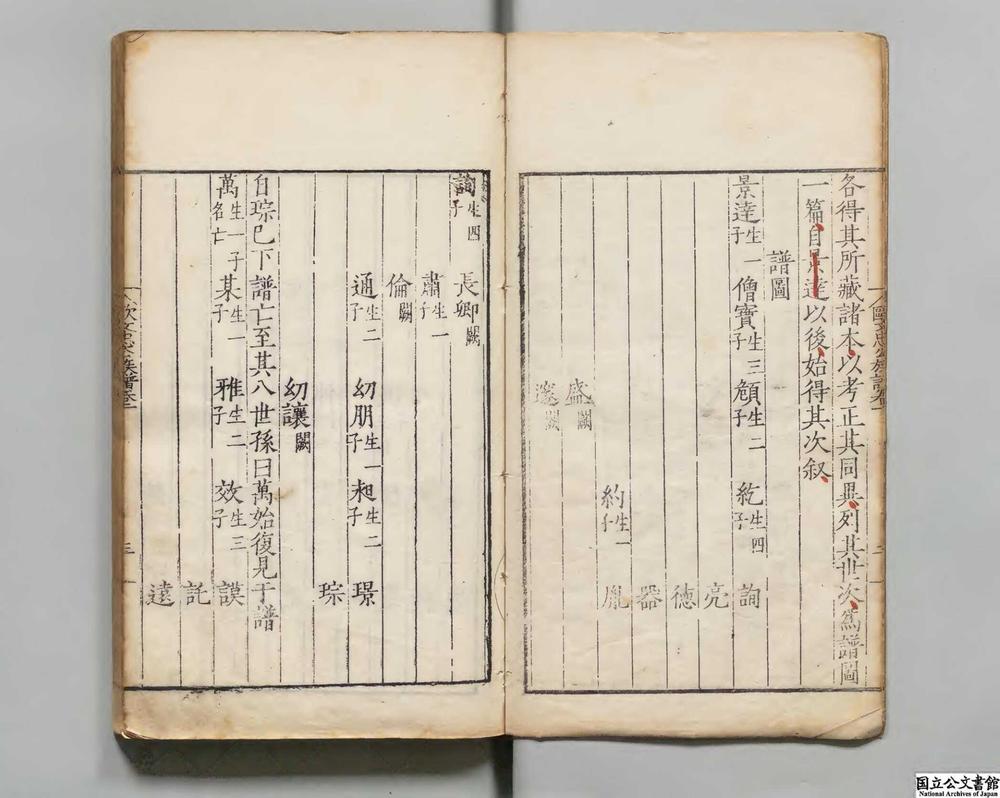 各得其所藏諸本以考正其同異列其世次為譜圖
一篇自景達以後始得其次叙
譜圖
景達生一子 僧寶生三子 頠生二子 紇生四子 詢
亮
德
器
約生一子 胤
盛闕
邃闕
詢生四子 長卿闕
肅生一子
倫闕
通生二子 幼朋生一子 昶生二子 璟
琮
幼讓闕
自琮已下譜亡至其八世孫曰萬始復見于譜
萬生一子名亡 某生一子 雅生二子 效生三子 謨
託
遠
国立公文書館
National Archives of Japan